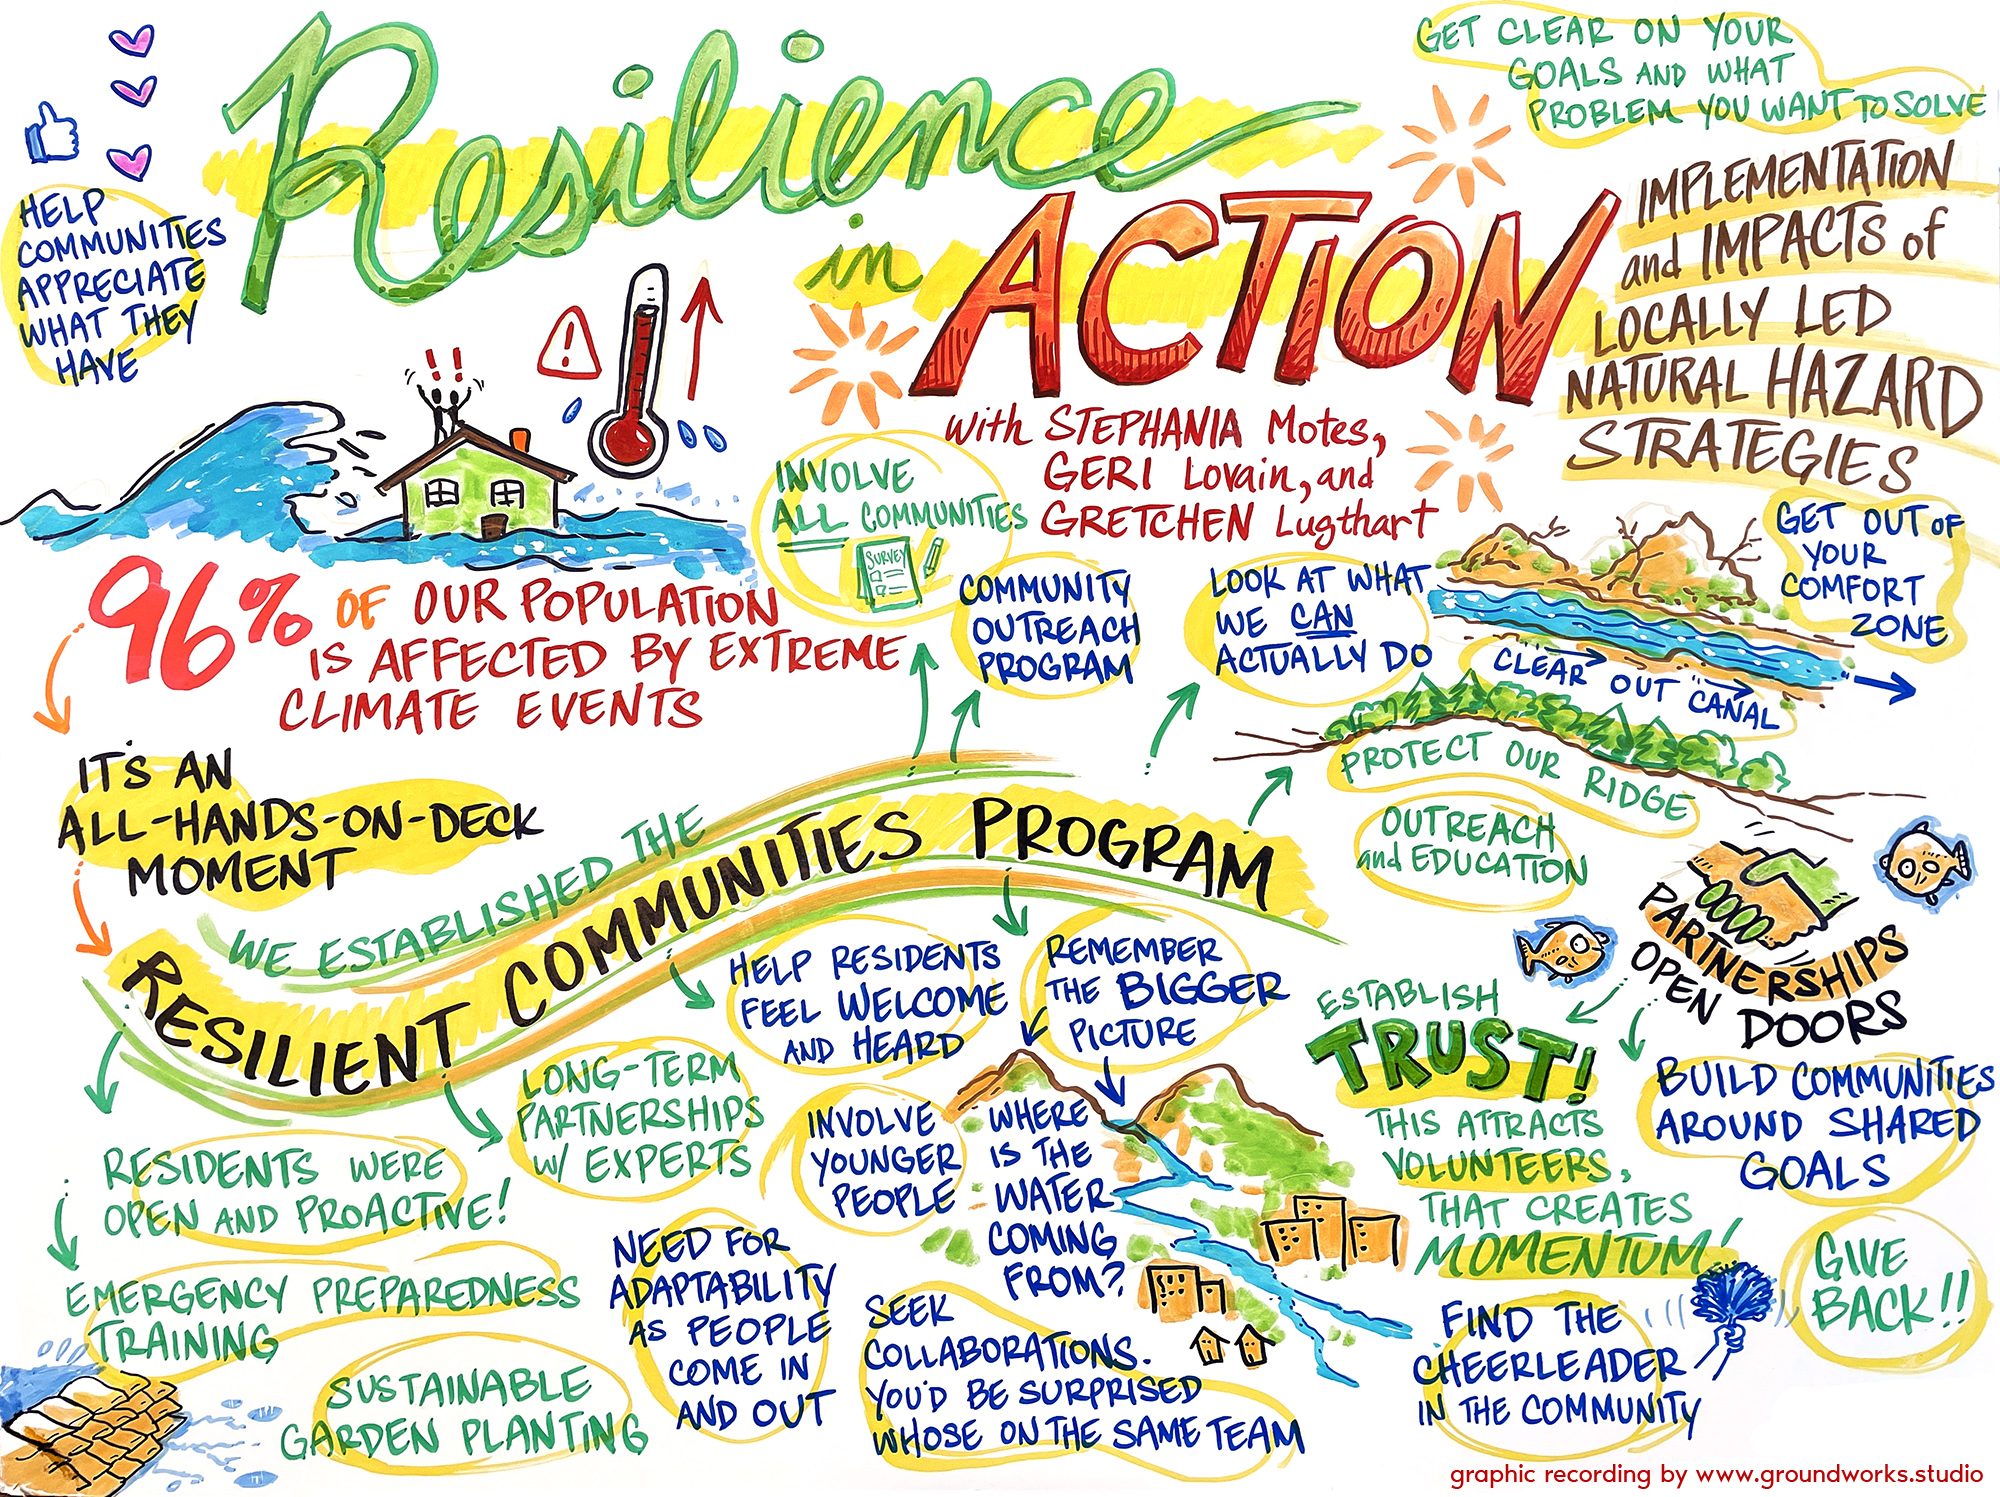 Resilience
in
ACTION
with STEPHANIA Motes,
GERI Lovain, and
GRETCHEN Lugthart
GET CLEAR ON YOUR
GOALS AND WHAT
PROBLEM YOU WANT TO SOLVE
IMPLEMENTATION
and IMPACTS of
LOCALLY LED
NATURAL HAZARD
STRATEGIES
HELP
COMMUNITIES
APPRECIATE
WHAT THEY
HAVE
!
!!
96% OF OUR POPULATION
IS AFFECTED BY EXTREME
CLIMATE EVENTS
INVOLVE
ALL COMMUNITIES
SURVEY
COMMUNITY
OUTREACH
PROGRAM
LOOK AT WHAT
WE CAN
ACTUALLY DO
GET OUT OF
YOUR
COMFORT
ZONE
CLEAR OUT CANAL
PROTECT OUR RIDGE
OUTREACH
and EDUCATION
IT'S AN
ALL-HANDS-ON-DECK
MOMENT
WE ESTABLISHED THE
RESILIENT COMMUNITIES PROGRAM
HELP RESIDENTS
FEEL WELCOME
AND HEARD
REMEMBER
THE BIGGER
PICTURE
PARTNERSHIPS
OPEN DOORS
ESTABLISH
TRUST!
THIS ATTRACTS
VOLUNTEERS,
THAT CREATES
MOMENTUM!
BUILD COMMUNITIES
AROUND SHARED
GOALS
LONG-TERM
PARTNERSHIPS
W/ EXPERTS
INVOLVE
YOUNGER
PEOPLE
WHERE
IS THE
WATER
COMING
FROM?
RESIDENTS WERE
OPEN AND PROACTIVE!
EMERGENCY PREPAREDNESS
TRAINING
SUSTAINABLE
GARDEN PLANTING
NEED FOR
ADAPTABILITY
AS PEOPLE
COME IN
AND OUT
SEEK
COLLABORATIONS.
YOU'D BE SURPRISED
WHOSE ON THE SAME TEAM
FIND THE
CHEERLEADER
IN THE COMMUNITY
GIVE
BACK!!
graphic recording by www.groundworks.studio